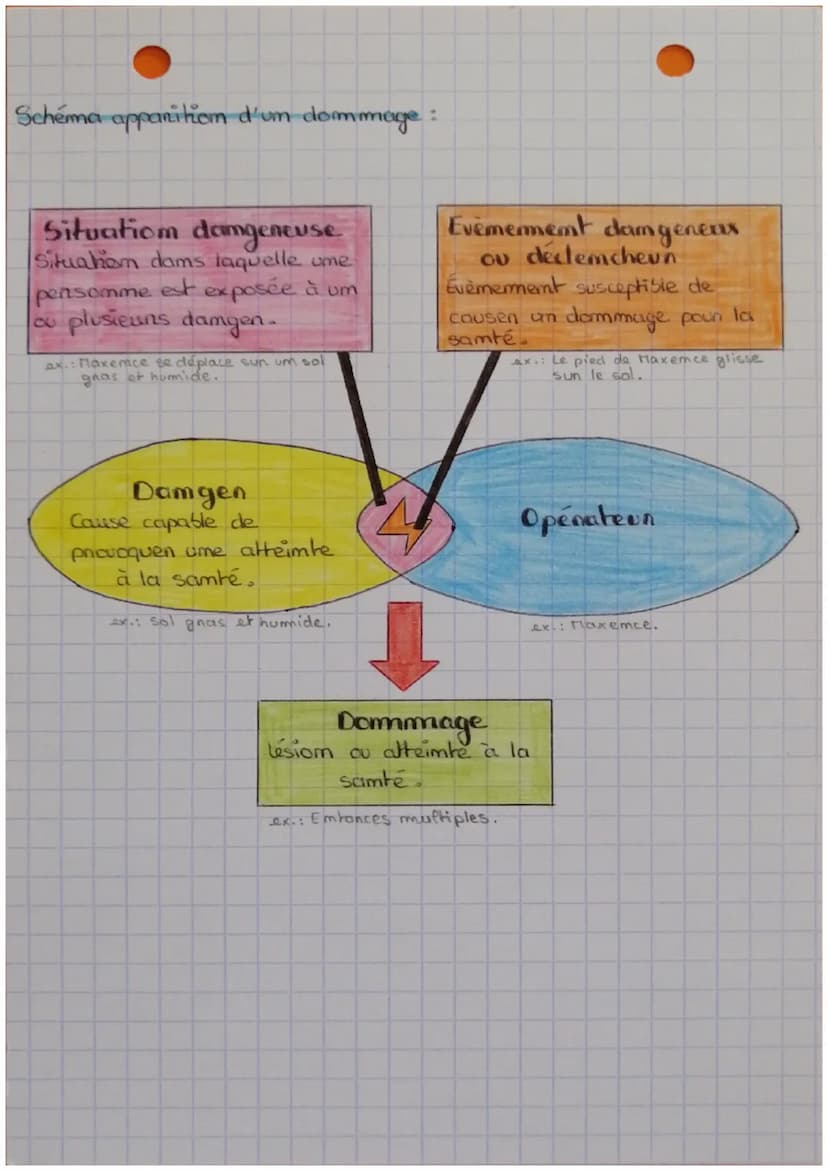 Schéma apparition d'un dommage :
Situation dangereuse
Situation dans laquelle une
personne est exposée à un
ou plusieurs danger.
ex.: Maxence se déplace sur un sol
gras et humide.
Evènement dangereux
ou déclencheur
Évènement susceptible de
causer un dommage pour la
santé.
ex.: Le pied de Maxence glisse
sur le sol.
Danger
Cause capable de
provoquer une atteinte
à la santé.
ex.: Sol gras et humide.
Opérateur
ex.: Maxence.
Dommage
Lésion ou atteinte à la
santé.
ex.: Entorses multiples.